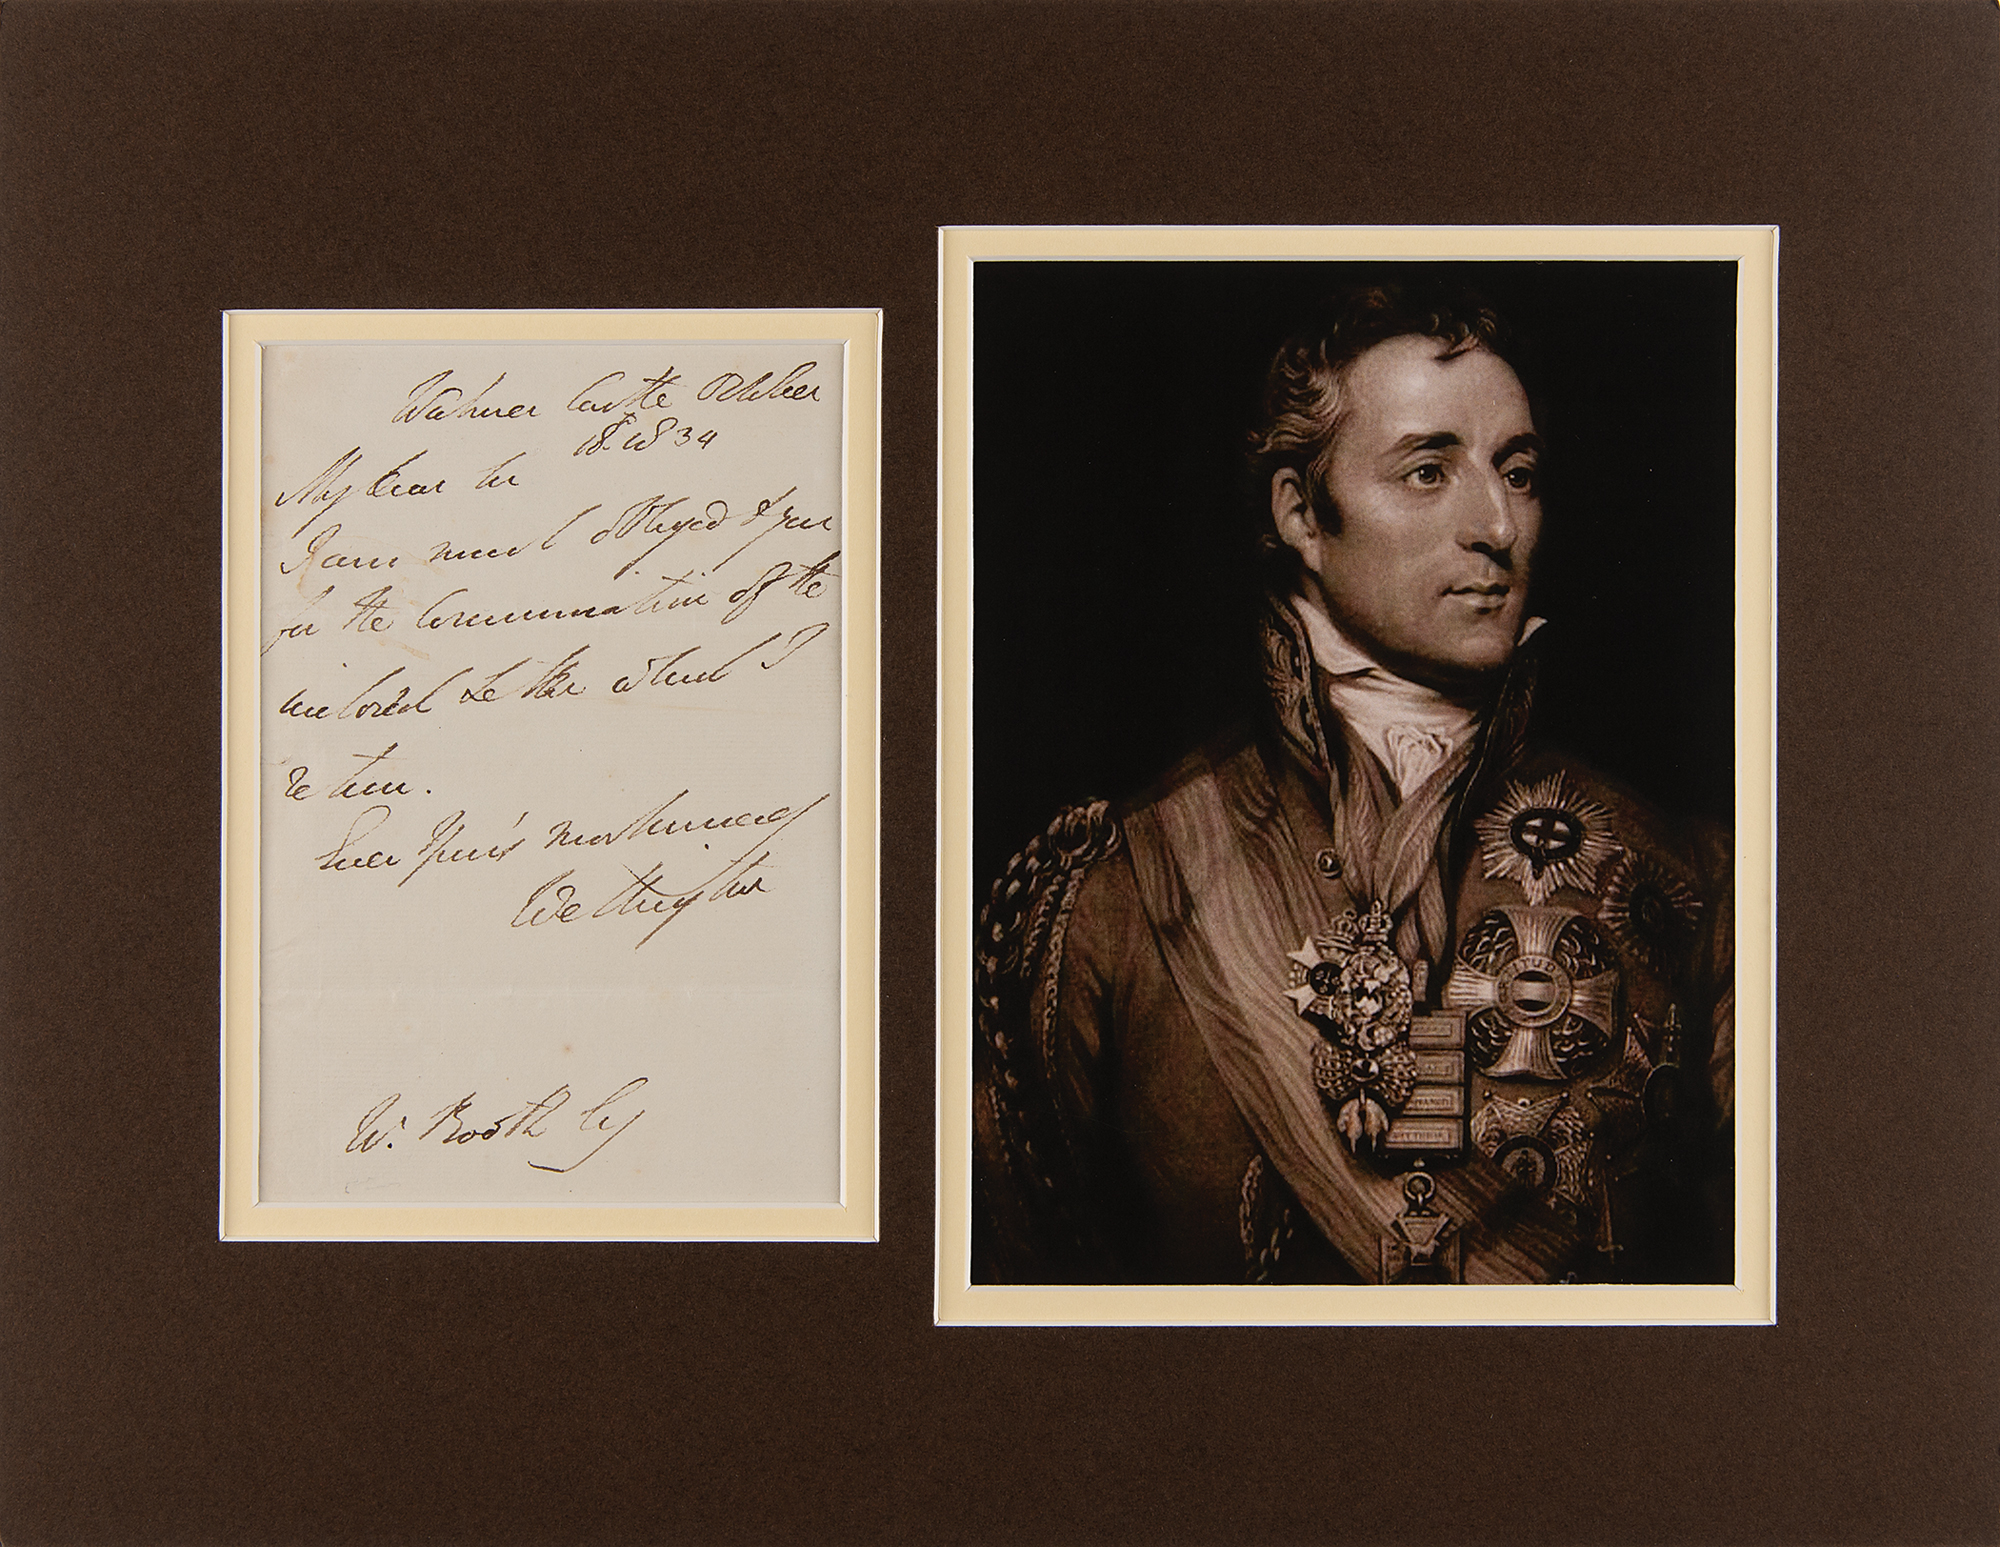 Walmer Castle October
18. 1834
My Dear Sir
I am much obliged to you
for the Communication of the
inclosed Letter which I
return.
Ever Yours most sincerely
Wellington
W. Booth Esq